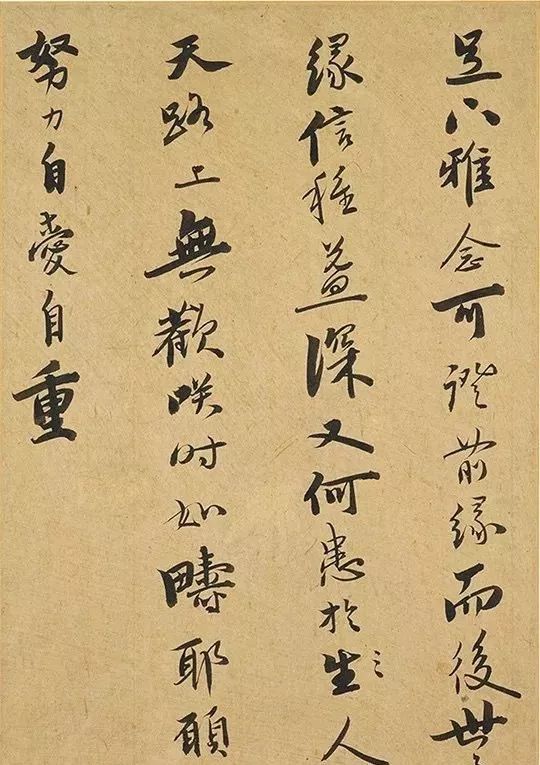 足下雅念可證前緣而後世
緣信種益深又何患於生〻人
天路上無歡咲时如疇耶願
努力自愛自重